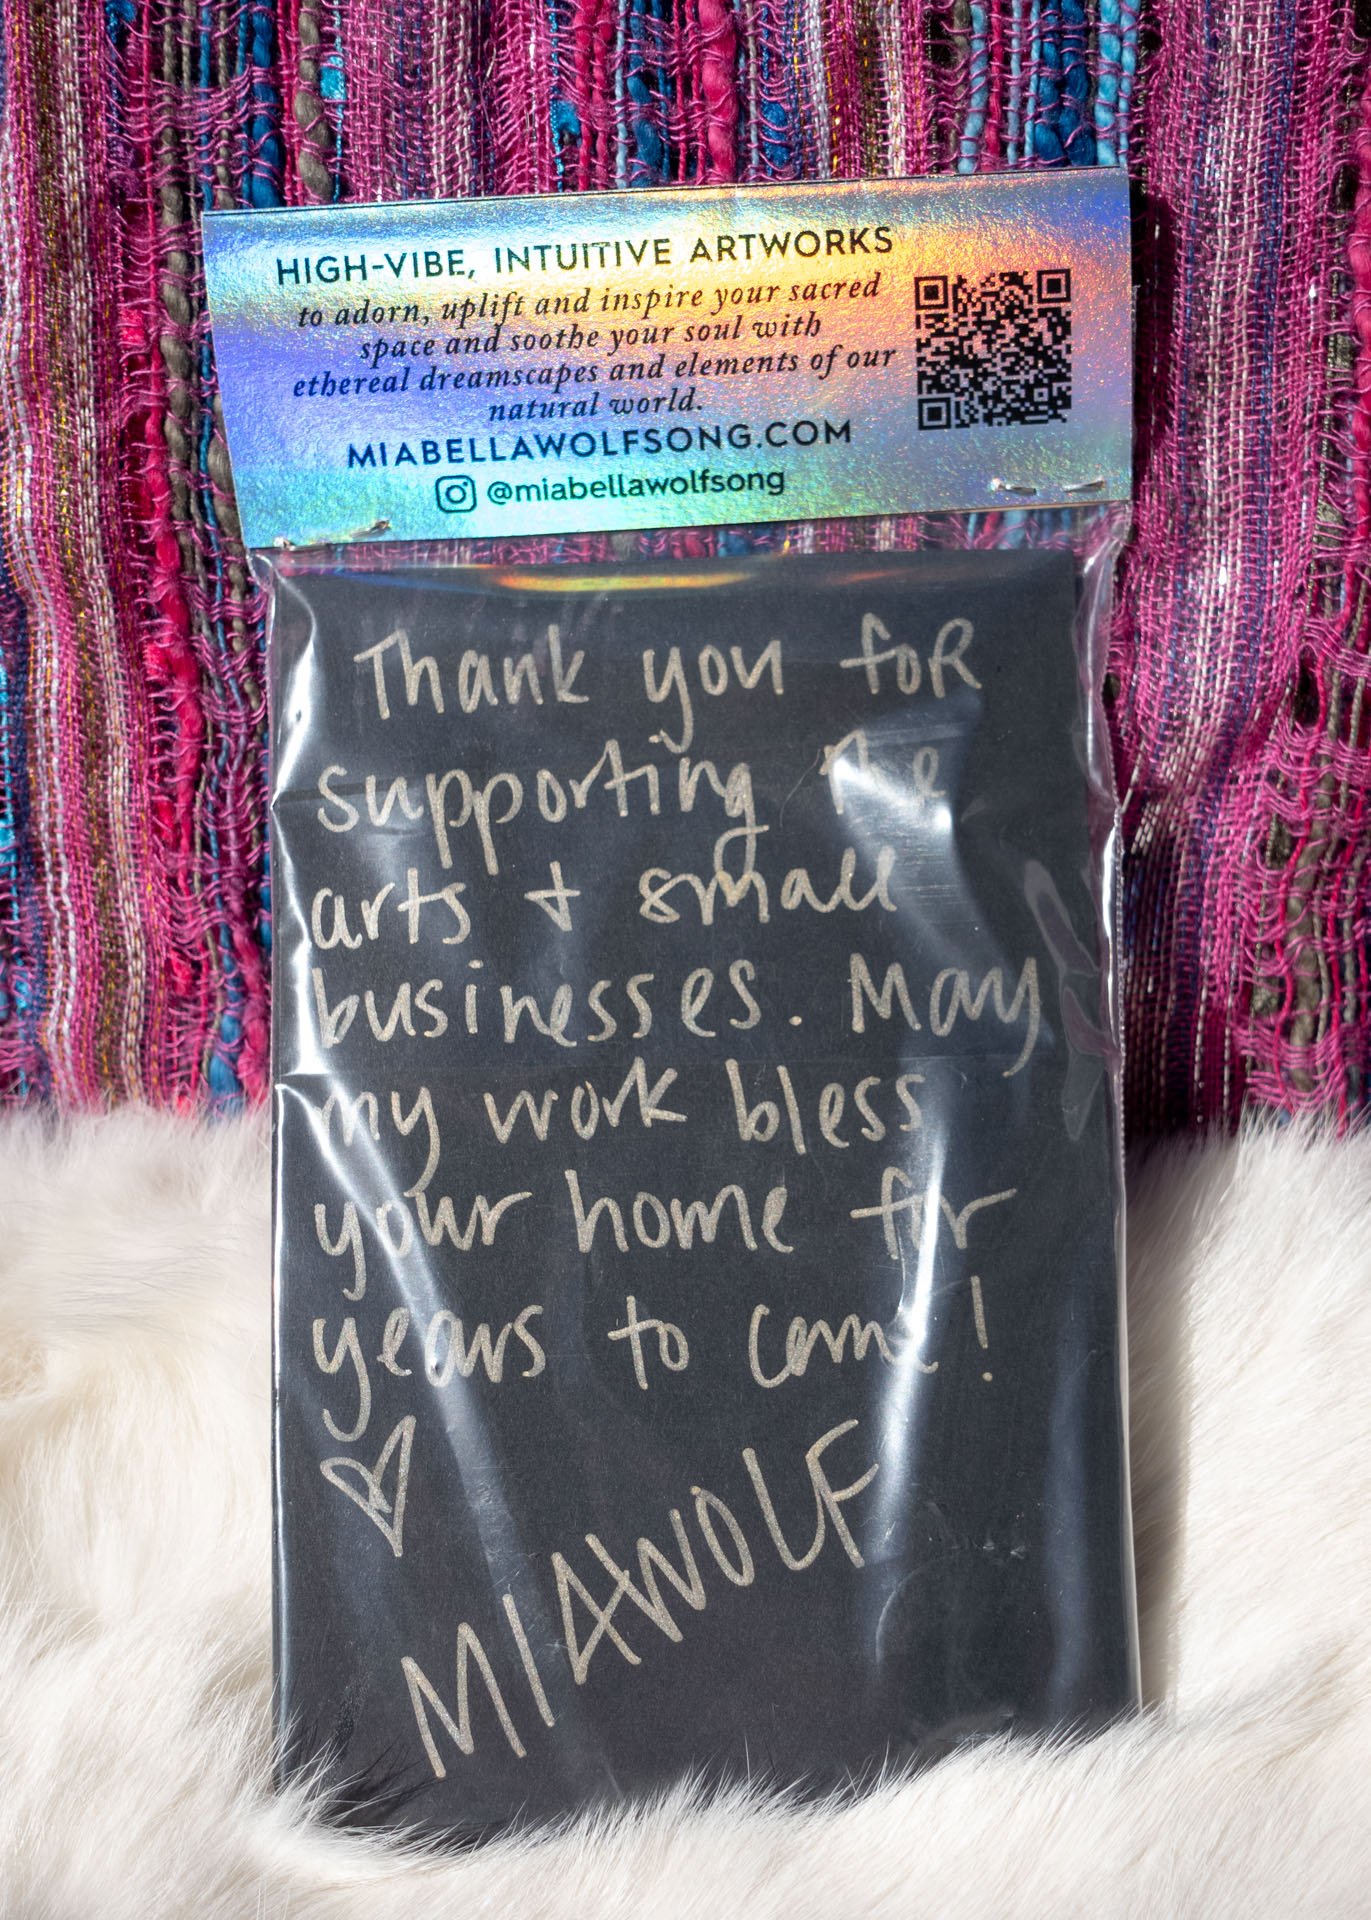 HIGH-VIBE, INTUITIVE ARTWORKS
to adorn, uplift and inspire your sacred
space and soothe your soul with
ethereal dreamscapes and elements of our
natural world.
MIABELLAWOLFSONG.COM
@miabellawolfsong
Thank you foR
supporting the
arts + small
businesses. May
my work bless
your home for
years to come!
MIAWOLF